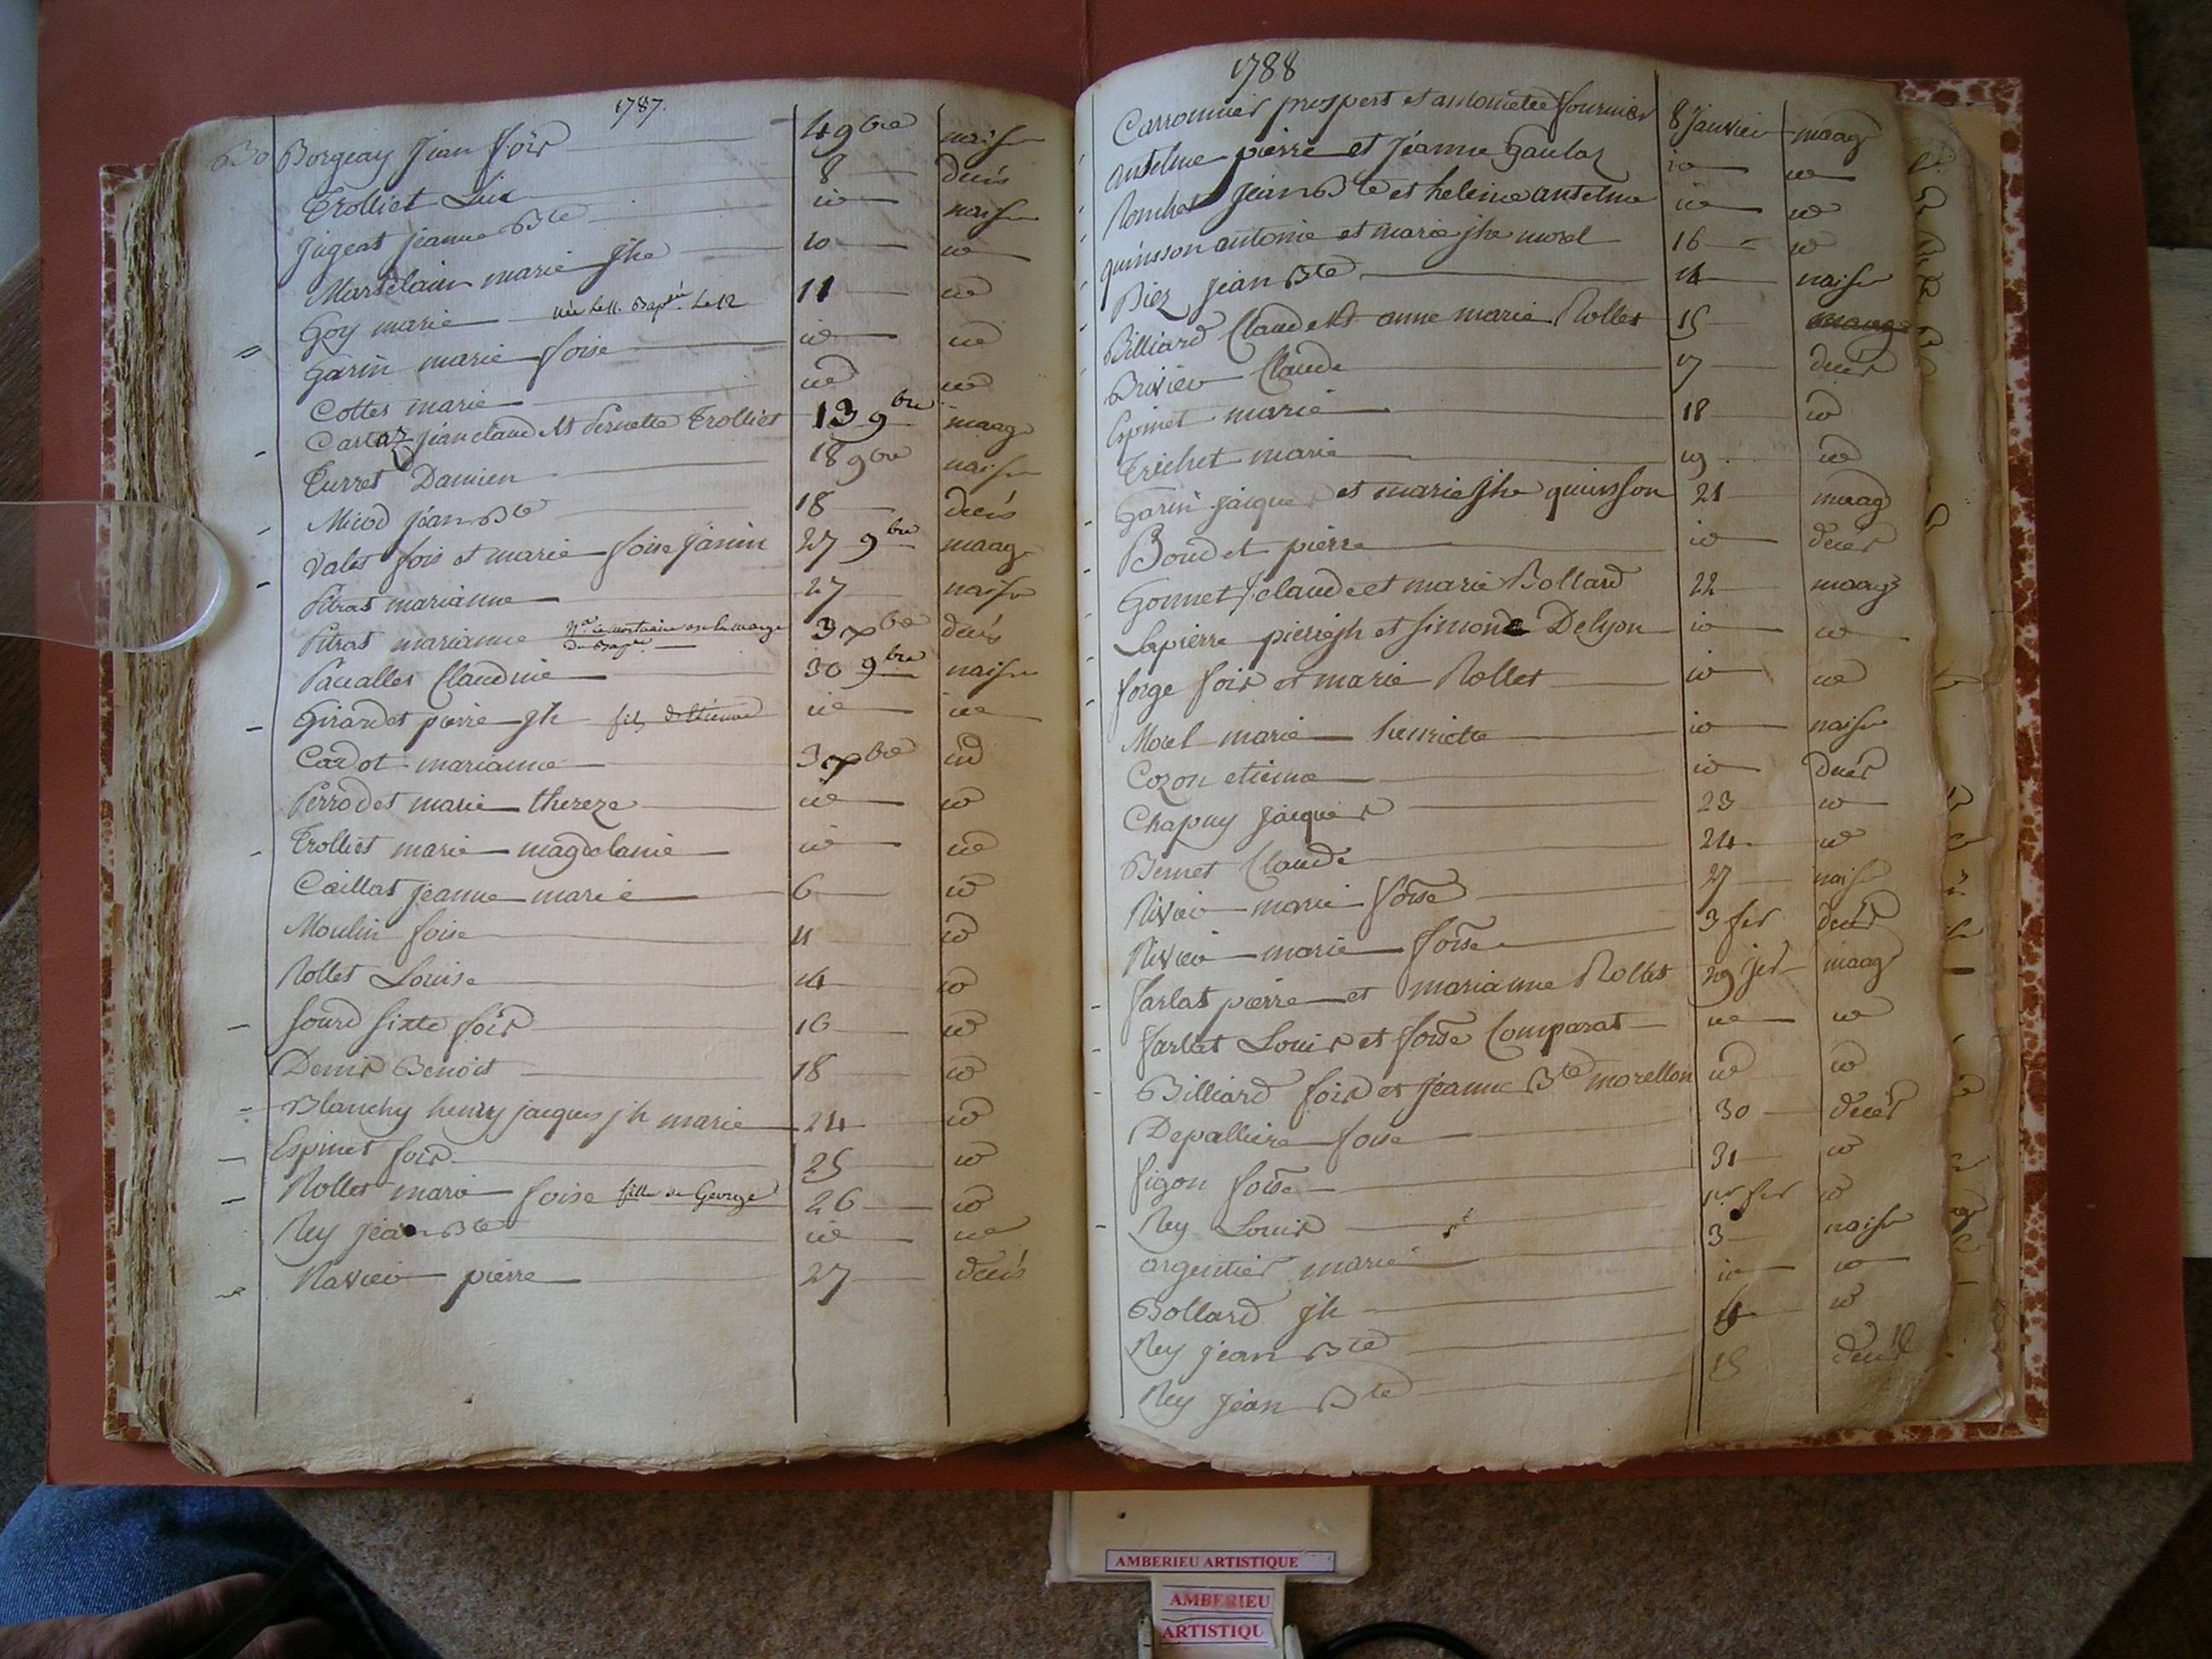 1787.
Borgeay Jean fois 4 9bre naisse
Trolliet Luc 8 decés
Jugeat jeanne Bte id naisse
Marselain marie jhe 10 id
Goy marie née le 11. Bapsée. le 12 11 id
Garin marie foise id id
Cottes marie id id
Cartaz jean claude et Pernette Trolliet 13 9bre maage
Turret Damien 18 9bre naisse
Micod jean Bte 18 decés
Valet fois et marie foise janin 27 9bre maage
Pitrat marianne 27 naisse
Pitrat marianne 3 xbre decés
Pacallet Claudine 30 9bre naisse
Girardet pierre jh fils d'etienne id id
Cadot marianne 3 xbre id
Perrodet marie thereze id id
Trolliet marie magdelaine id id
Caillat jeanne marie 6 id
Moulin foise 11 id
Rollet Louise 14 id
Sourd sixte fois 16 id
Denis Benoit 18 id
Blanchy henry jacques jh marie 24 id
Espinet fois 25 id
Rollet marie foise fille de George 26 id
Rey jean Bte id id
Ravier pierre 27 decés
1788
Carronnier prospert et antoinette fournier 8 Janvier maag
Anselme pierre et Jeanne Gaulaz 10 id
Ronchet Jean Bte et heleine anselme id id
quinsson antoine et marie jhe morel 16 id
Biez Jean Bte 14 naisse
Billiard Claude et anne marie Rollet 15 maage
Brivier Claude 17 decés
Espinet marie 18 id
Trichet marie 19 id
Garin jacque et marie jhe quinsson 21 maag
Boudet pierre id decés
Gonnet claude et marie Bollard 22 maage
Lapierre pierre jh et simone Delyon id id
forge fois et marie Rollet id id
Morel marie henriette id naisse
Cozon etienne id decés
Chapuy Jacques 23 id
Bernet Claude 24 id
Rivier marie foise 27 naisse
Rivier marie foise 3 fer decés
farlat pierre et marianne Rollet 29 jer maag
farlat Louis et foise Comparat id id
Billiard fois et Jeanne Bte morellon id id
Depalliere foise 30 decés
figon foise 31 id
Rey Louis 1er fer id
argentier marie 3 naisse
Bollard jh id id
Rey jean Bte id
Rey Jean Bte 18 decés
AMBERIEU ARTISTIQUE
AMBERIEU
ARTISTIQU